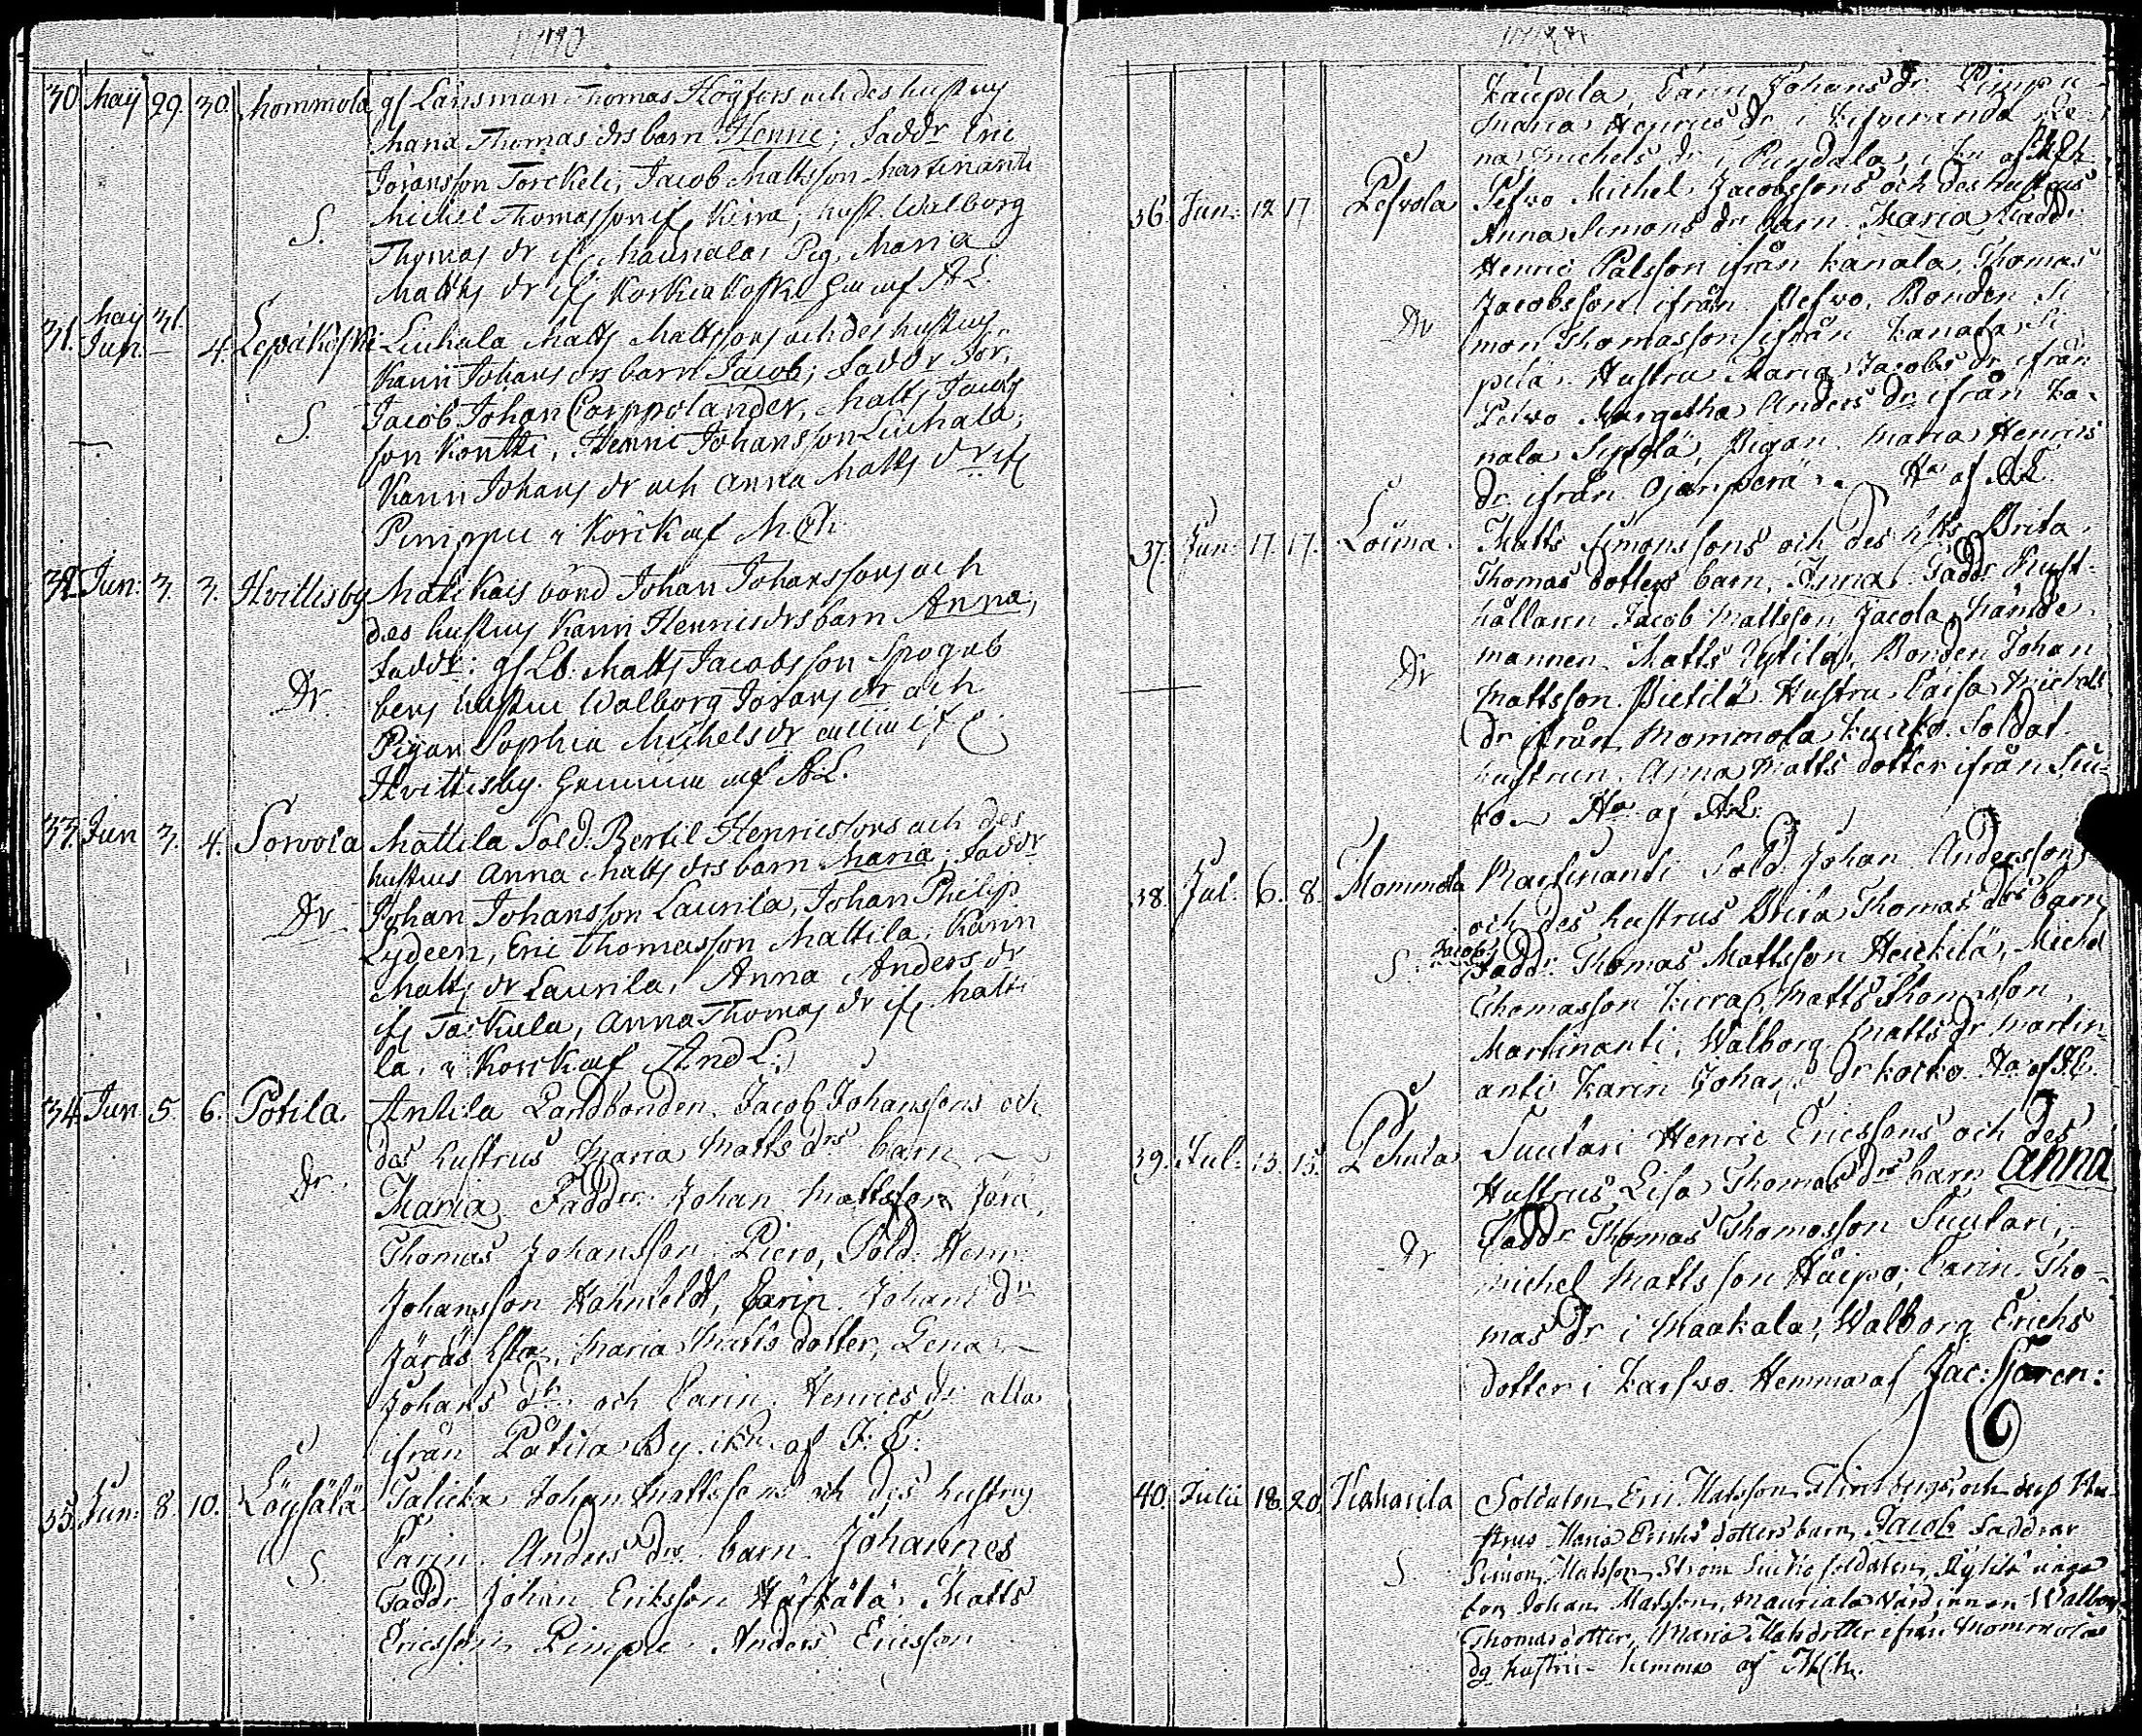 30 Maÿ 29. 30. Mommola gf Länsman Thomas Högfors och des hustrus
Maria Thomas drs barn Henric; Faddr Eric
Joransson Torckeli, Jacob Mattsson Martinanti
S. Michel Thomasson if Kirra, hust. Walborg
Thomas dr if Maunala, Pig. Maria
Matts dr if Koskiakoski Hem af AL.
31. Maÿ Jun. 31. 4. Lepäkoski Liuhala Matts Mattssons och des hustrus
Karin Johans drs barn Jacob; Faddr
S. Jacob Johan Carppolander, Matts Jacobs
son Kontti, Henric Johansson Liuhala,
Karin Johans dr och Anna Matts dr if
Pimppu i Kÿrck af M.Ch.
32 Jun. 3. 3. Hvittisby Mattikais bond Johan Johanssons och
des hustrus Karin Henricsdrs barn Anna,
Faddr: gf Lb. Matts Jacobsson
Dr. hustru Walborg Jorans dr och
Pigan Sophia Michels dr alla if
Hvittisby. Hemma af AL.
33. Jun 3. 4. Sorvola Mattila Sold. Bertil Henricssons och des
hustrus Anna Matts drs barn Maria; Faddr
Dr Johan Johansson Laurila, Johan Philip
Lydeen, Eric Thomasson Mattila, Karin
Matts dr Laurila, Anna Anders dr
if Taskula, Anna Thomas dr if Matti
la, i Kÿrck af And L.
34. Jun 5. 6. Potila Antila Landbonden Jacob Johanssons och
des hustrus Maria Matts drs barn
Dr. Maria Faddr. Johan Mattsson Järä,
Thomas Johansson Piero, Sold. Henr.
Johansson Hahnfeldt, Carin Johans dr
Järäs Esta, Maria Matts dotter, Lena
Johans dr och Carin Henrics dr alla
ifrån Påtila By. i Kn. af J. E.
35. Jun: 8. 10. Löysälä Talicka Johan Mattssons och des hustrus
S. Carin Anders drs barn Johannes
Faddr Johan Eriksson Härkälä, Matts
Ericsson Pimpu Anders Ericsson
Kaupila, Carin Johans dr. Pimpu
Maria Henrics dr i Kesveranda Le-
na Michels dr i Puydala, i Kn af M.Ch.
36. Jun: 12 17 Pesvola Pesvo Michel Jacobssons och des hustrus
Anna Simons drs barn Maria Faddr:
Henric Pålsson ifrån Kanala, Thomas
Jacobsson ifrån Pesvo, Bonden Si
Dr mon Thomasson ifrån Kanala Si
pilä. Hustru Maria Jacobs dr ifrån
Pesvo Margetha Anders dr ifrån Ka-
nala Sipilä, Pigan Maria Henrics
dr ifrån Ojanperä Ha af A.L.
37. Jun: 17 17. Loima. Matts Simonssons och des hus Brita
Thomas dotters barn, Anna, Faddr. Rust-
hållaren Jacob Mattsson Jacola, Nämde-
Dr mannen Matts Uytilä, Bonden Johan
Mattsson Pietilä. Hustru Caisa Michels
dr ifrån Mommola Kuicko. Soldat
hustrun Anna Matts dotter ifrån Siu-
ko Ha af A.L.
38. Jul: 6. 8. Mommola Martinanti Sold. Johan Anderssons
och des hustrus Brita Thomas drs barn
S. Jacob Faddr. Thomas Mattsson Heickilä, Michel
Thomasson Kirra, Matts Thomsson
Martinanti, Walborg Matts dr Martin
anti Karin Johans dr Kocko. Ha af J.E.
39. Jul: 13. 15. Lekula Suutari Henric Ericssons och des
Hustrus Lisa Thomas drs barn Anna
Dr Faddr Thomas Thomasson Suutari,
Michel Matts son Håipo, Carin Tho-
mas dr i Maakala, Walborg Erichs
dotter i Karsvo. Hemma af Jac: Floren:
40. Julii 18. 20. Kaharila Soldaten Eric Matsson Flinckbergs och dess Hu
strus Maria Erichs dotters barn, Jacob Faddrar
S. Simon Matsson Ström Siuko soldaten,
Johan Matsson, Mauriala Värdinnan Walborg
Thomasdotter, Maria Matsdotter ifrån Mommola
dg hustru- hemma af M.Ch.